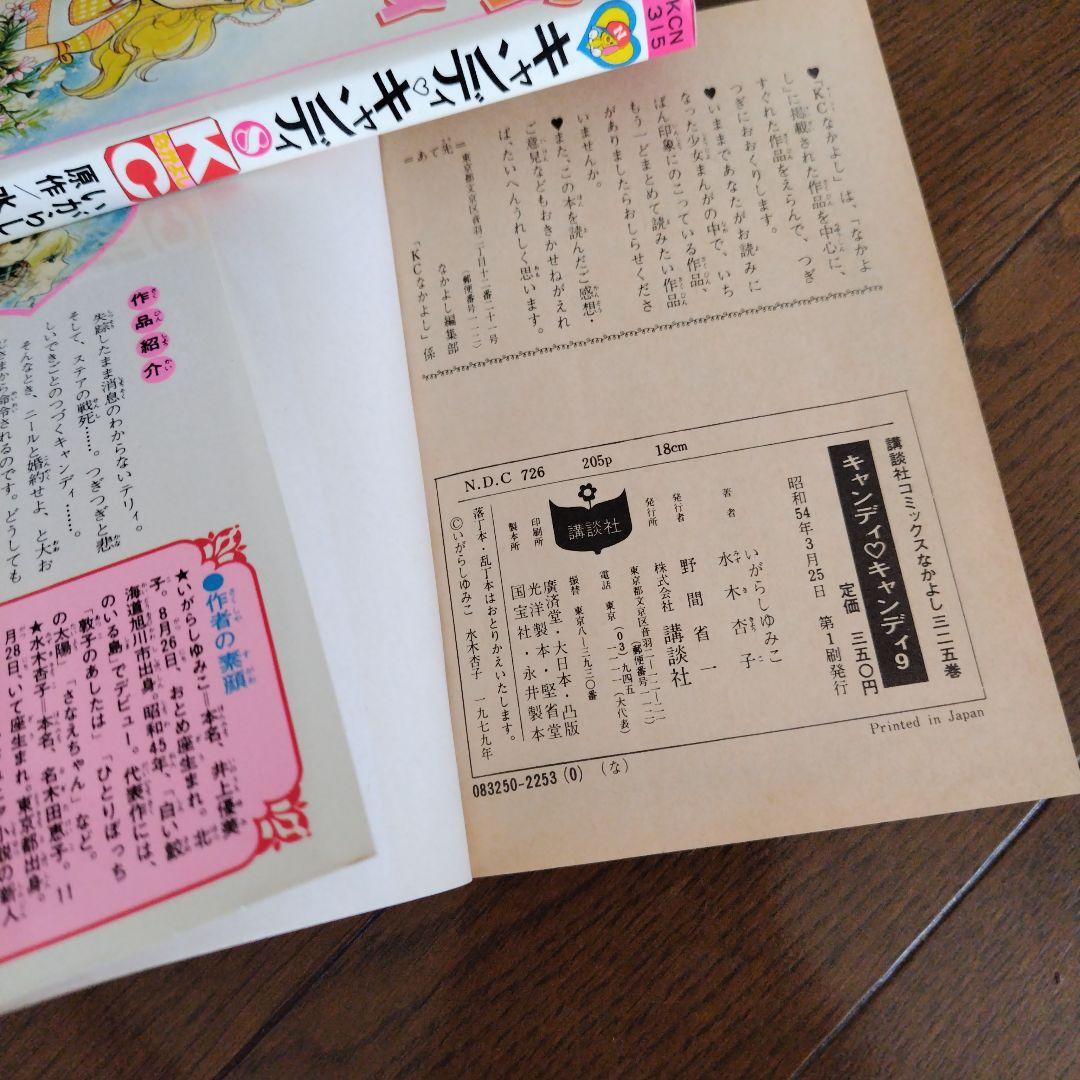 KCN
315
キャンディ♡キャンディ⑧
KC
なかよし
いがらし
原作/水
♥「KCなかよし」は、「なかよ
し」に掲載された作品を中心に、
すぐれた作品をえらんで、つぎ
つぎにおおくりします。
♥いままであなたがお読みに
なった少女まんがの中で、いち
ばん印象にのこっている作品、
もう一どまとめて読みたい作品
がありましたらおしらせくださ
いませんか。
♥また、この本を読んだご感想・
ご意見などもおきかせねがえれ
ば、たいへんうれしく思います。
=あて先=
東京都文京区音羽二丁目十二番二十一号
(郵便番号一一二)
なかよし編集部
「KCなかよし」係
講談社コミックスなかよし三二五巻
キャンディ♡キャンディ9
定価 三五〇円
昭和54年3月25日 第1刷発行
著者 いがらしゆみこ
水木杏子
発行者 野間省一
発行所 株式会社 講談社
東京都文京区音羽二-一二-二一
(郵便番号一一二)
電話 東京(03)九四五-一一一一(大代表)
振替 東京八-三九三〇番
講談社
印刷所 廣済堂・大日本・凸版
製本所 光洋製本・堅省堂
国宝社・永井製本
落丁本・乱丁本はおとりかえいたします。
©いがらしゆみこ 水木杏子 一九七九年
N.D.C 726 205p 18cm
Printed in Japan
083250-2253(0) (な)
作品紹介
失踪したまま消息のわからないテリィ。
そして、ステアの戦死……。つぎつぎと悲
しいできごとのつづくキャンディ……。
そんなとき、ニールと婚約せよ、と大お
じさまから命令されるのです。どうしても
●作者の素顔
★いがらしゆみこ=本名、井上優美
子。8月26日、おとめ座生まれ。北
海道旭川市出身。昭和45年、「白い鮫
のいる島」でデビュー。代表作には、
「敦子のあしたは」「ひとりぼっち
の太陽」「さなえちゃん」など。
★水木杏子=本名、名木田恵子。11
月28日、いて座生まれ。東京都出身。
小説の新人